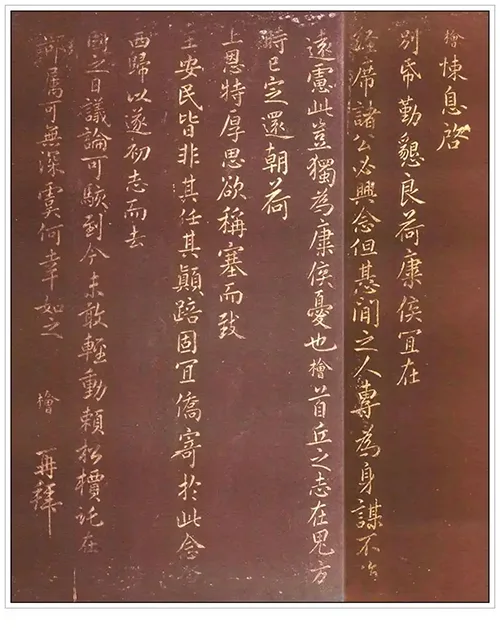 檜悚息啓
別帋勤懇良荷康侯宜在
經席諸公必興念但甚間之人專為身謀不
遠慮此豈獨為康侯憂也檜首丘之志在鬼方
時已定還朝荷
上恩特厚思欲稱塞而致
主安民皆非其任其顛踣固宜僑寄於此念念
西歸以遂初志而去
國之日議論可駭到今未敢輕動賴松檟託在
部属可無深虞何幸如之 檜 再拜